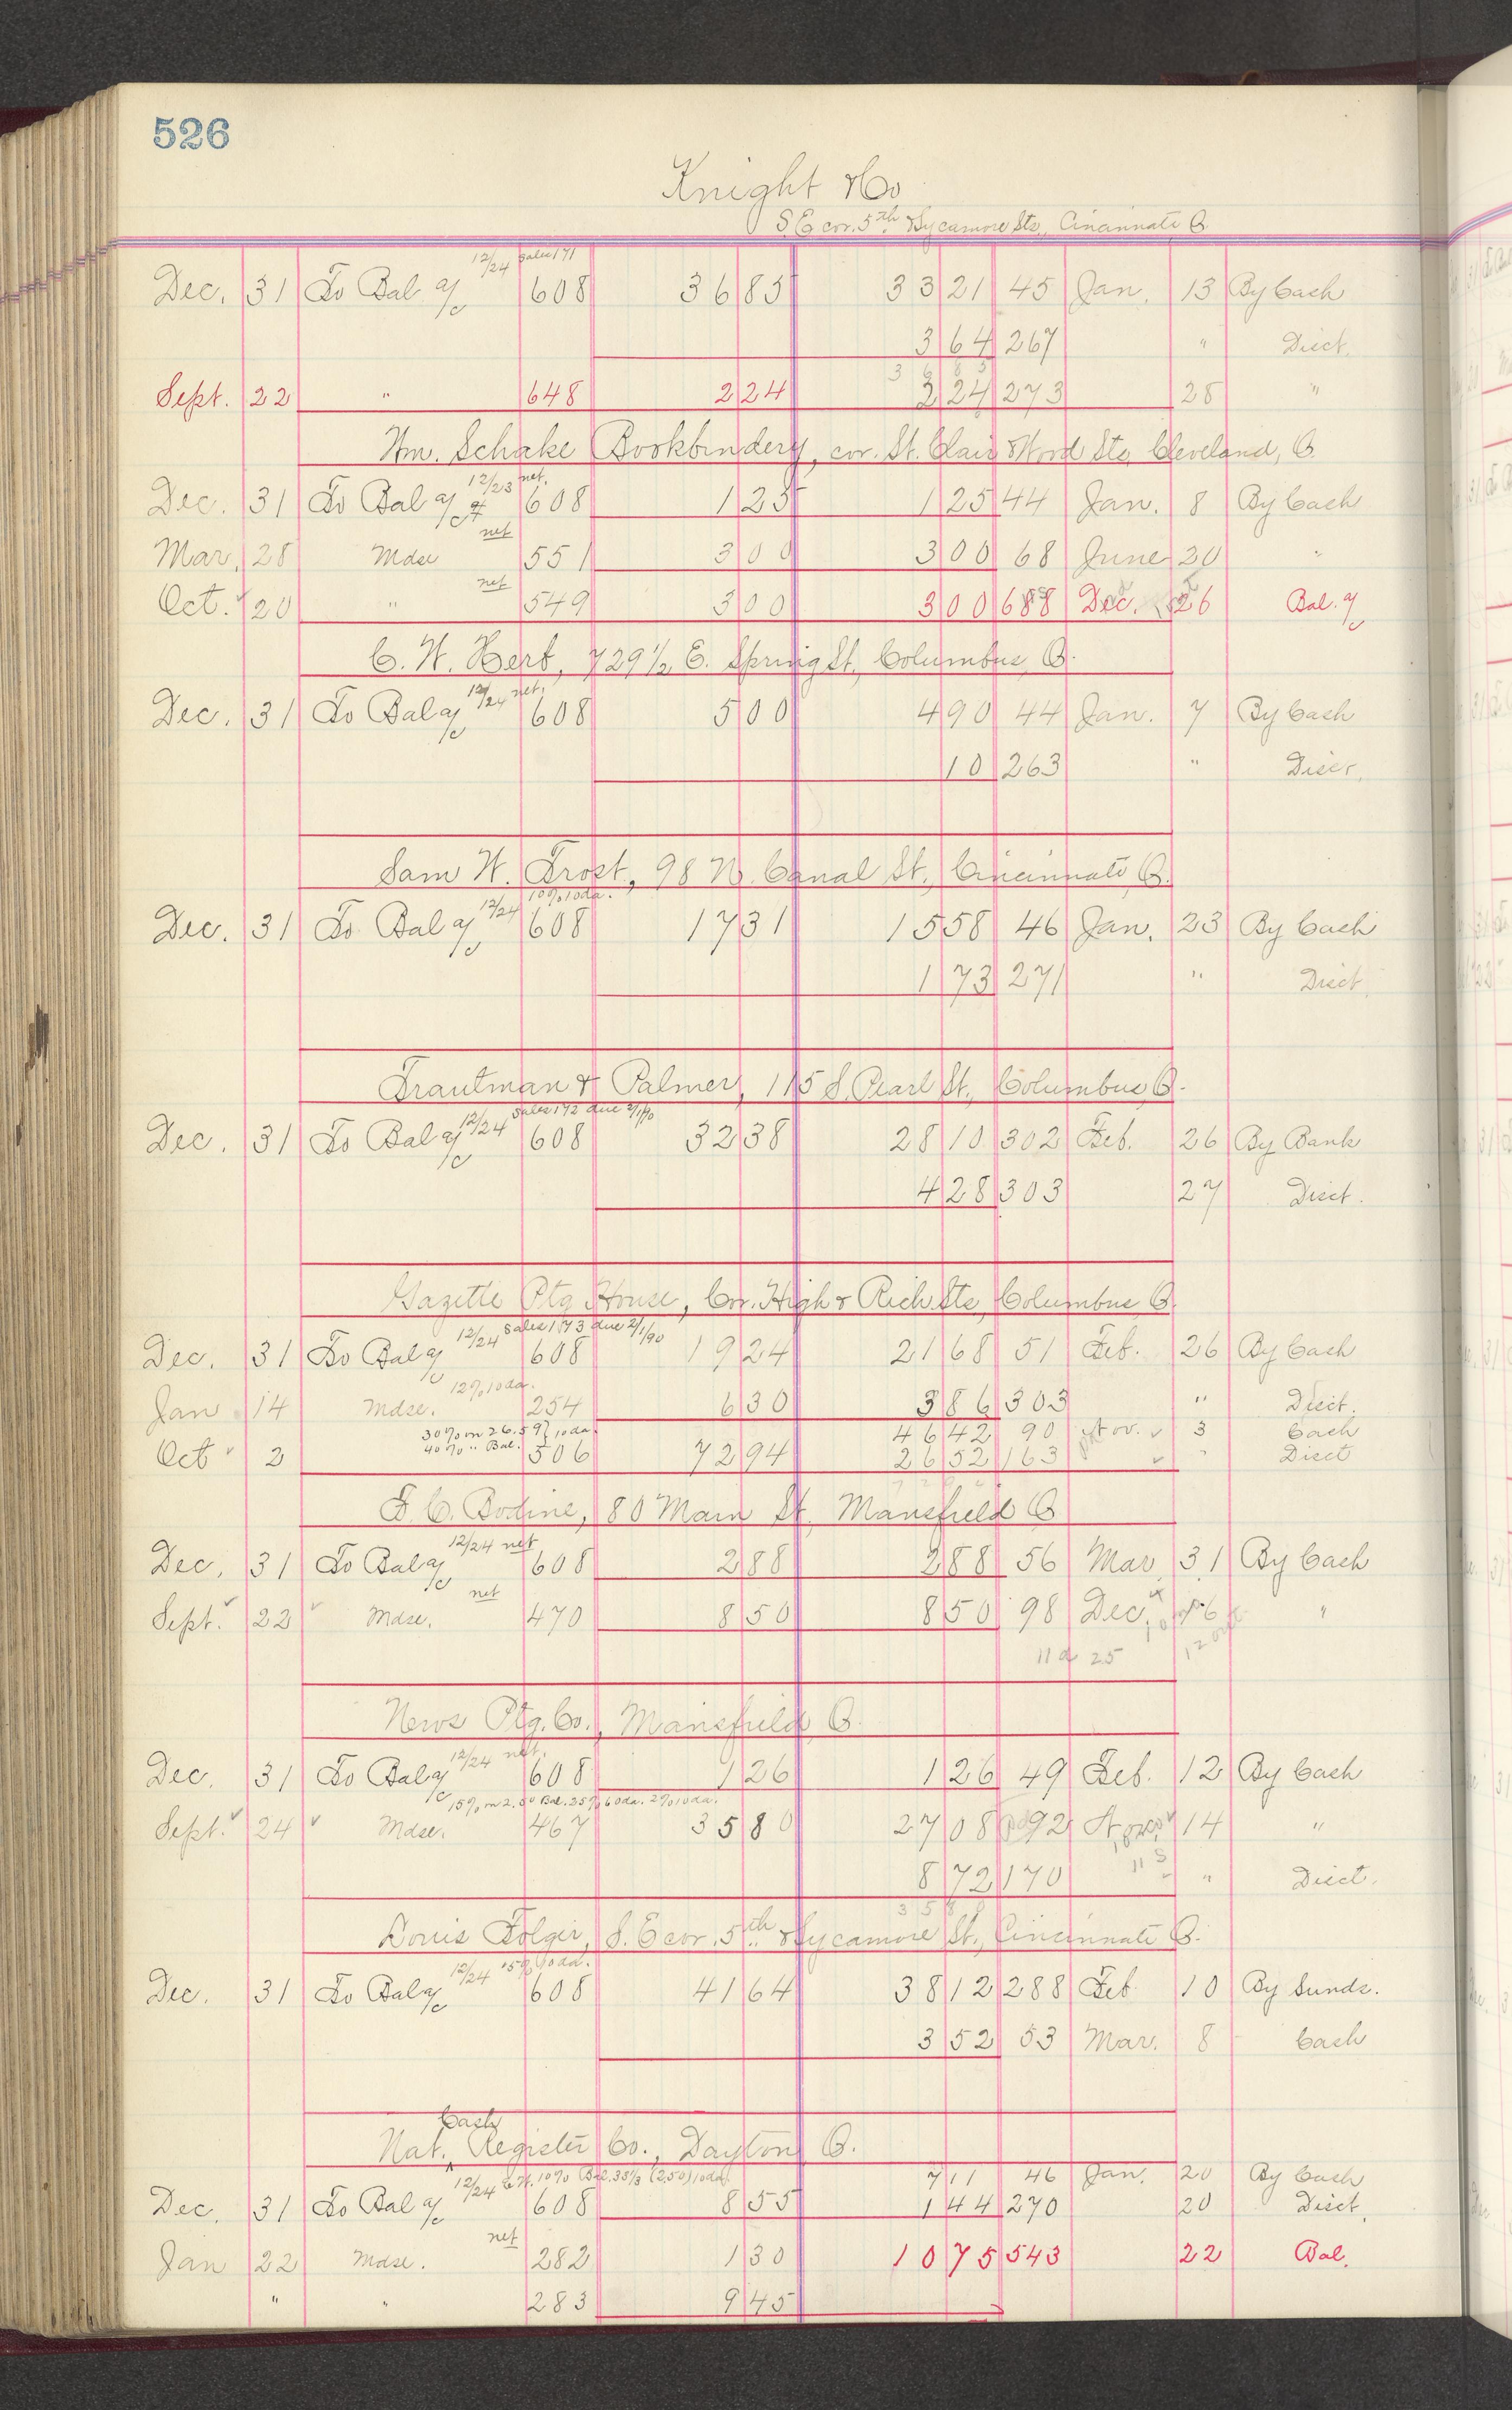 526
Knight & Co
S. E. cor. 5th & Sycamore Sts., Cincinnati O.
12/24 Sales 171
Dec. 31 To Bal a/c 608 36 85 33 21 45 Jan. 13 By Cash
3 64 267 " Disct.
3 6 8 5
Sept. 22 " 648 2 24 2 24 273 28 "
Wm. Schake Bookbindery, cor. St. Clair & Wood Sts. Cleveland, O.
12/23 net.
Dec. 31 To Bal a/c 608 1 25 1 25 44 Jan. 8 By Cash
net
Mar. 28 Mdse 551 3 00 3 00 68 June 20 "
net
Oct. 20 " 549 3 00 3 00 688 Dec. 26 Bal. a/c
C. W. Herb, 729 1/2 E. Spring St., Columbus, O.
12/24 net.
Dec. 31 To Bal a/c 608 5 00 4 90 44 Jan. 7 By Cash
10 263 " Discr.
Sam W. Trost, 98 N. Canal St., Cincinnati O.
12/24 10% 10 da.
Dec. 31 To Bal a/c 608 17 31 15 58 46 Jan. 23 By Cash
1 73 271 " Disct.
Trautman & Palmer, 115 S. Pearl St., Columbus O.
12/24 Sales 172 due 2/1/90
Dec. 31 To Bal a/c 608 32 38 28 10 302 Feb. 26 By Bank
4 28 303 27 Disct.
Gazette Ptg House, Cor. High & Rich Sts, Columbus O.
12/24 Sales 173 due 2/1/90
Dec. 31 To Bal a/c 608 19 24 21 68 51 Feb. 26 By Cash
12% 10 da.
Jan 14 Mdse. 254 6 30 3 86 303 " Disct.
30% on 26.59 } 10 da. 46 42 90 Nov. 3 Cash
40% " Bal.
Oct 2 506 72 94 26 52 163 " Disct
F. C. Bodine, 80 Main St. Mansfield O
12/24 net
Dec. 31 To Bal a/c 608 2 88 2 88 56 Mar 31 By Cash
net
Sept. 22 Mdse. 470 8 50 8 50 98 Dec. 6 "
11 a 25
News Ptg. Co., Mansfield O.
12/24 net.
Dec. 31 To Bal a/c 608 1 26 1 26 49 Feb. 12 By Cash
15% on 2.50 Bal. 25% 60 da. 2% 10 da.
Sept. 24 Mdse. 467 35 80 27 08 92 Nov 14 "
8 72 170 " Disct.
3 5 8 0
Louis Folger, S. E cor. 5th & Sycamore St., Cincinnati O.
12/24 15% 10 da.
Dec. 31 To Bal a/c 608 41 64 38 12 288 Feb. 10 By Sunds.
3 52 53 Mar. 8 Cash
Nat. Cash Register Co., Dayton O.
7 11 46 Jan. 20 By Cash
12/24 10% Bal. 35 1/3 (2.50) 10 da.
Dec. 31 To Bal a/c 608 8 55 1 44 270 20 Disct.
net
Jan 22 Mdse. 282 1 30 10 75 543 22 Bal.
" " 283 9 45